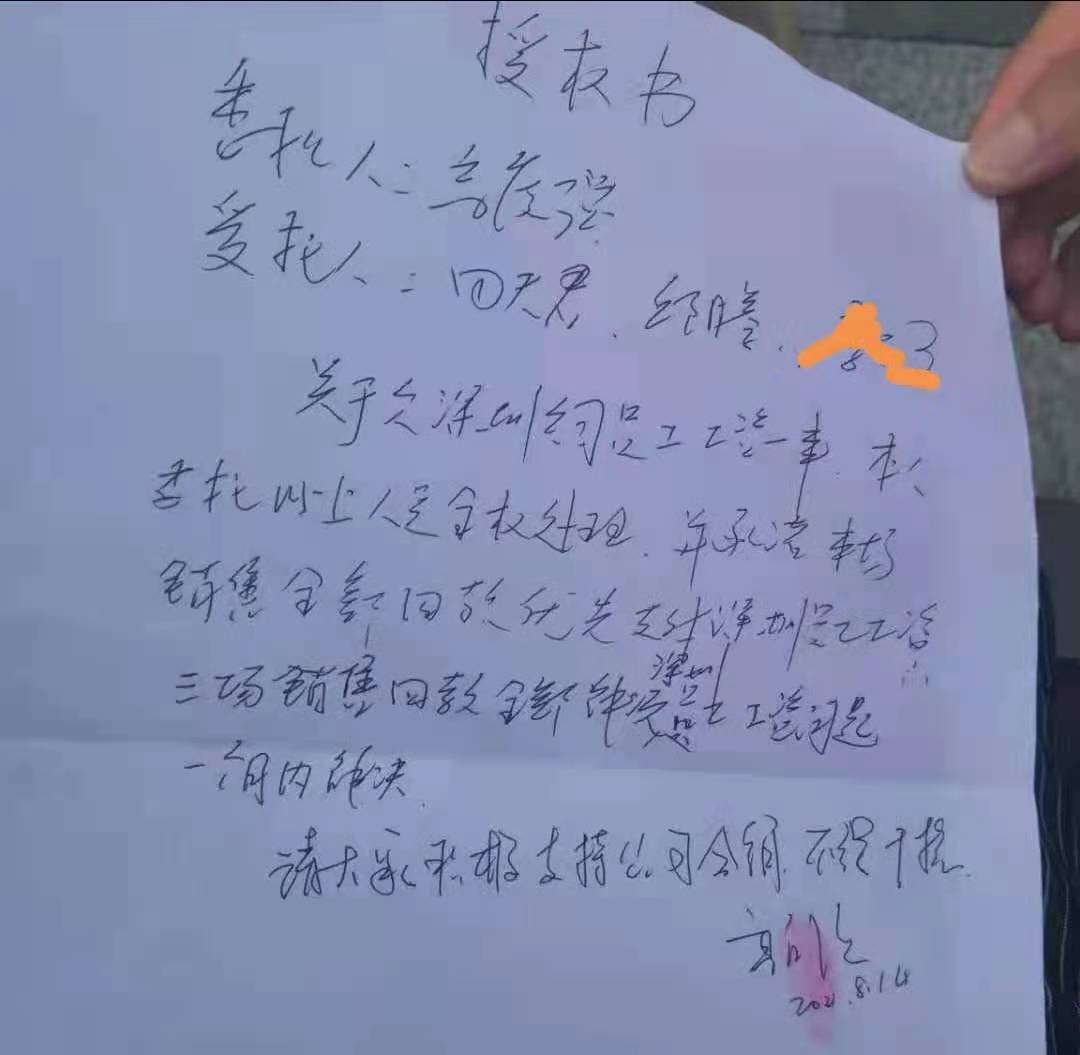 授权书
委托人：高彦强
受托人：回天君、纪瞻、
关于欠深圳约员工工资一事，本人
委托以上人员全权处理，并承诺本场
销售全部回款优先支付深圳员工工资
三场销售回款全部解决深圳员工工资问题
一个月内解决
请大家积极支持公司合同，不得干扰。
2021.8.14